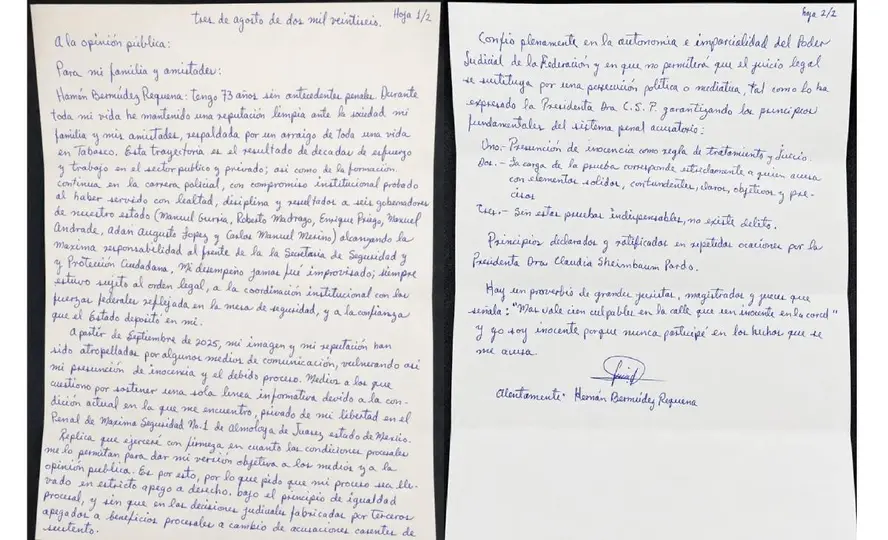 tres de agosto de dos mil veintiseis. Hoja 1/2
A la opinión pública:
Para mi familia y amistades:
Hernán Bermúdez Requena: tengo 73 años sin antecedentes penales. Durante
toda mi vida he mantenido una reputación limpia ante la sociedad mi
familia y mis amistades, respaldada por un arraigo de toda una vida
en Tabasco. Esta trayectoria es el resultado de decadas de esfuerzo
y trabajo en el sector publico y privado; así como de la formación
continua en la carrera policial, con compromiso institucional probado
al haber servido con lealtad, disciplina y resultados a seis gobernadores
de nuestro estado (Manuel Gurria, Roberto Madrazo, Enrique Priego, Manuel
Andrade, Adan Augusto Lopez y Carlos Manuel Merino) alcanzando la
maxima responsabilidad al frente de la la Secretaria de Seguridad
y Protección Ciudadana. Mi desempeño jamas fué improvisado; siempre
estuvo sujeto al orden legal, a la coordinación institucional con las
fuerzas federales reflejada en la mesa de seguridad, y a la confianza
que el Estado depositó en mi.
A partir de Septiembre de 2025, mi imagen y mi reputación han
sido atropelladas por algunos medios de comunicación, vulnerando así
mi presunción de inocencia y el debido proceso. Medios a los que
cuestiono por sostener una sola linea informativa devido a la con-
dición actual en la que me encuentro, privado de mi libertad en el
Penal de Maxima Seguridad No. 1 de Almoloya de Juarez, estado de México.
Replica que ejerceré con firmeza en cuanto las condiciones procesales
me lo permitan para dar mi versión objetiva a los medios y a la
opinión publica. Es por esto, por lo que pido que mi proceso sea lle-
vado en estricto apego a derecho, bajo el principio de igualdad
procesal, y sin que en las decisiones judiciales fabricadas por terceros
apegados a beneficios procesales a cambio de acusaciones carentes de
sustento.
Hoja 2/2
Confío plenamente en la autonomia e imparcialidad del Poder
Judicial de la Federación y en que no permitirá que el juicio legal
se sustituya por una persecución política o mediatica, tal como lo ha
expresado la Presidenta Dra C.S.P. garantizando los principios
fundamentales del sistema penal acusatorio:
Uno.- Presunción de inocencia como regla de tratamiento y Juicio.
Dos.- La carga de la prueba corresponde estrictamente a quien acusa
con elementos solidos, contundentes, claros, objetivos y pre-
cisos
Tres.- Sin estas pruebas indispensables, no existe delito.
Principios declarados y ratificados en repetidas ocaciones por la
Presidenta Dra Claudia Sheimbaum Pardo.
Hay un proverbio de grandes juristas, magistrados y jueces que
señala: "Mas vale cien culpables en la calle que un inocente en la carcel"
y yo soy inocente porque nunca participé en los hechos que se
me acusa.
Atentamente. Hernán Bermúdez Requena